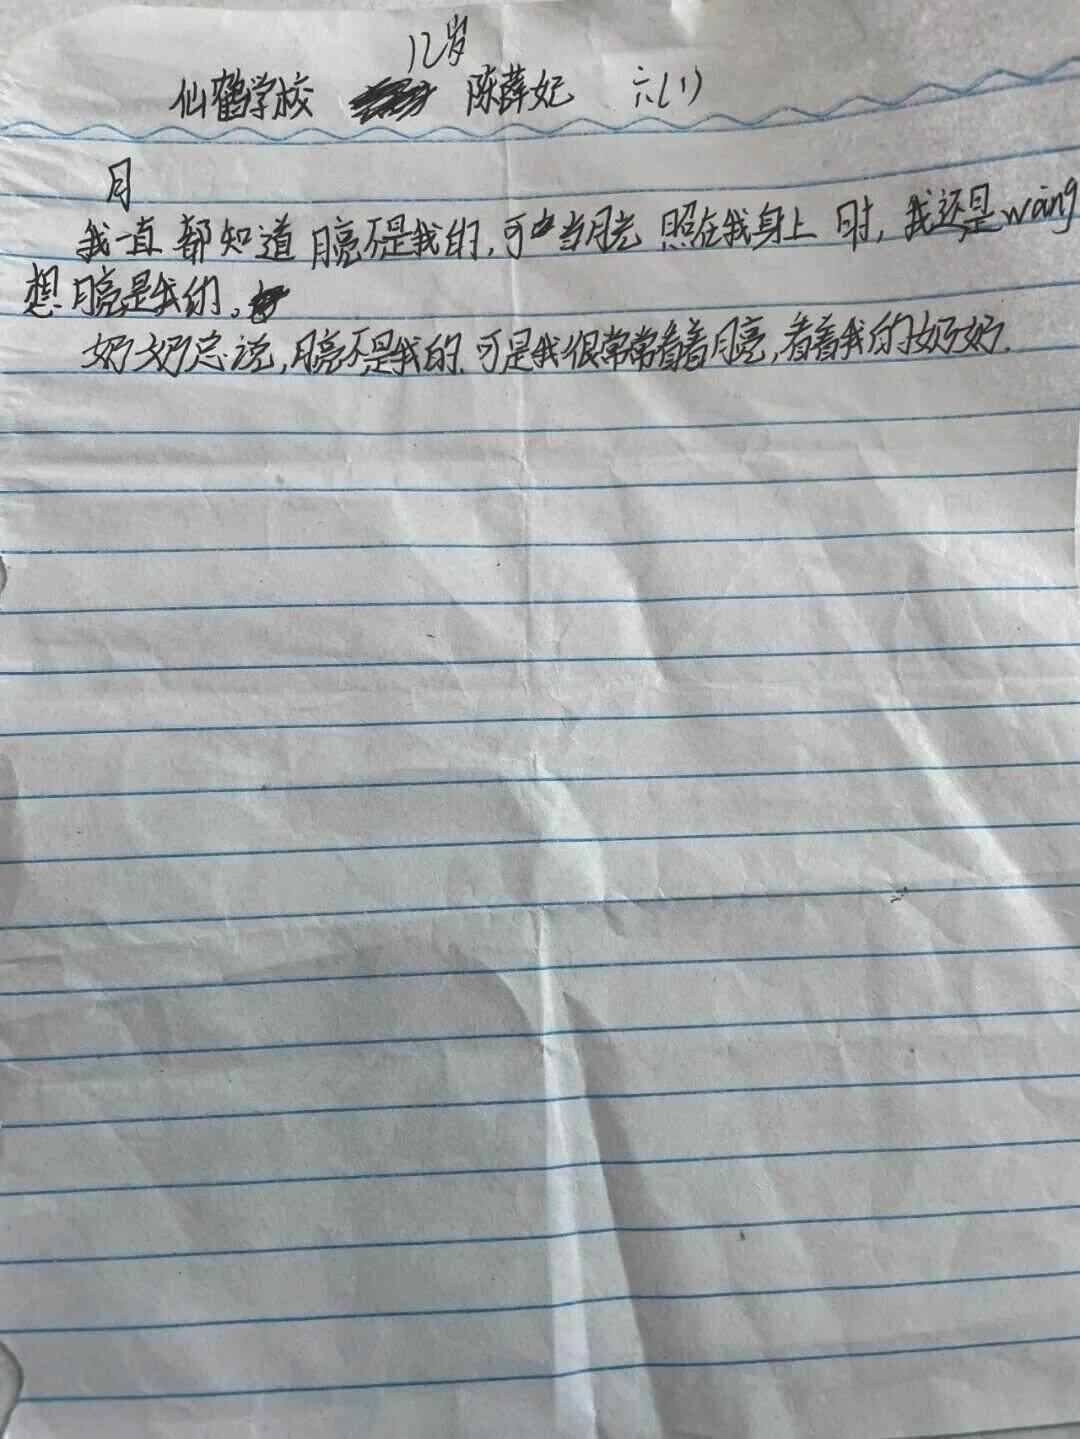 12岁
仙鹤学校 陈薛妃 六(1)
月
我一直都知道月亮不是我的,可当月光照在我身上时,我还是wàng
想月亮是我的。
奶奶总说,月亮不是我的.可是我很常常看着月亮,看着我的奶奶.